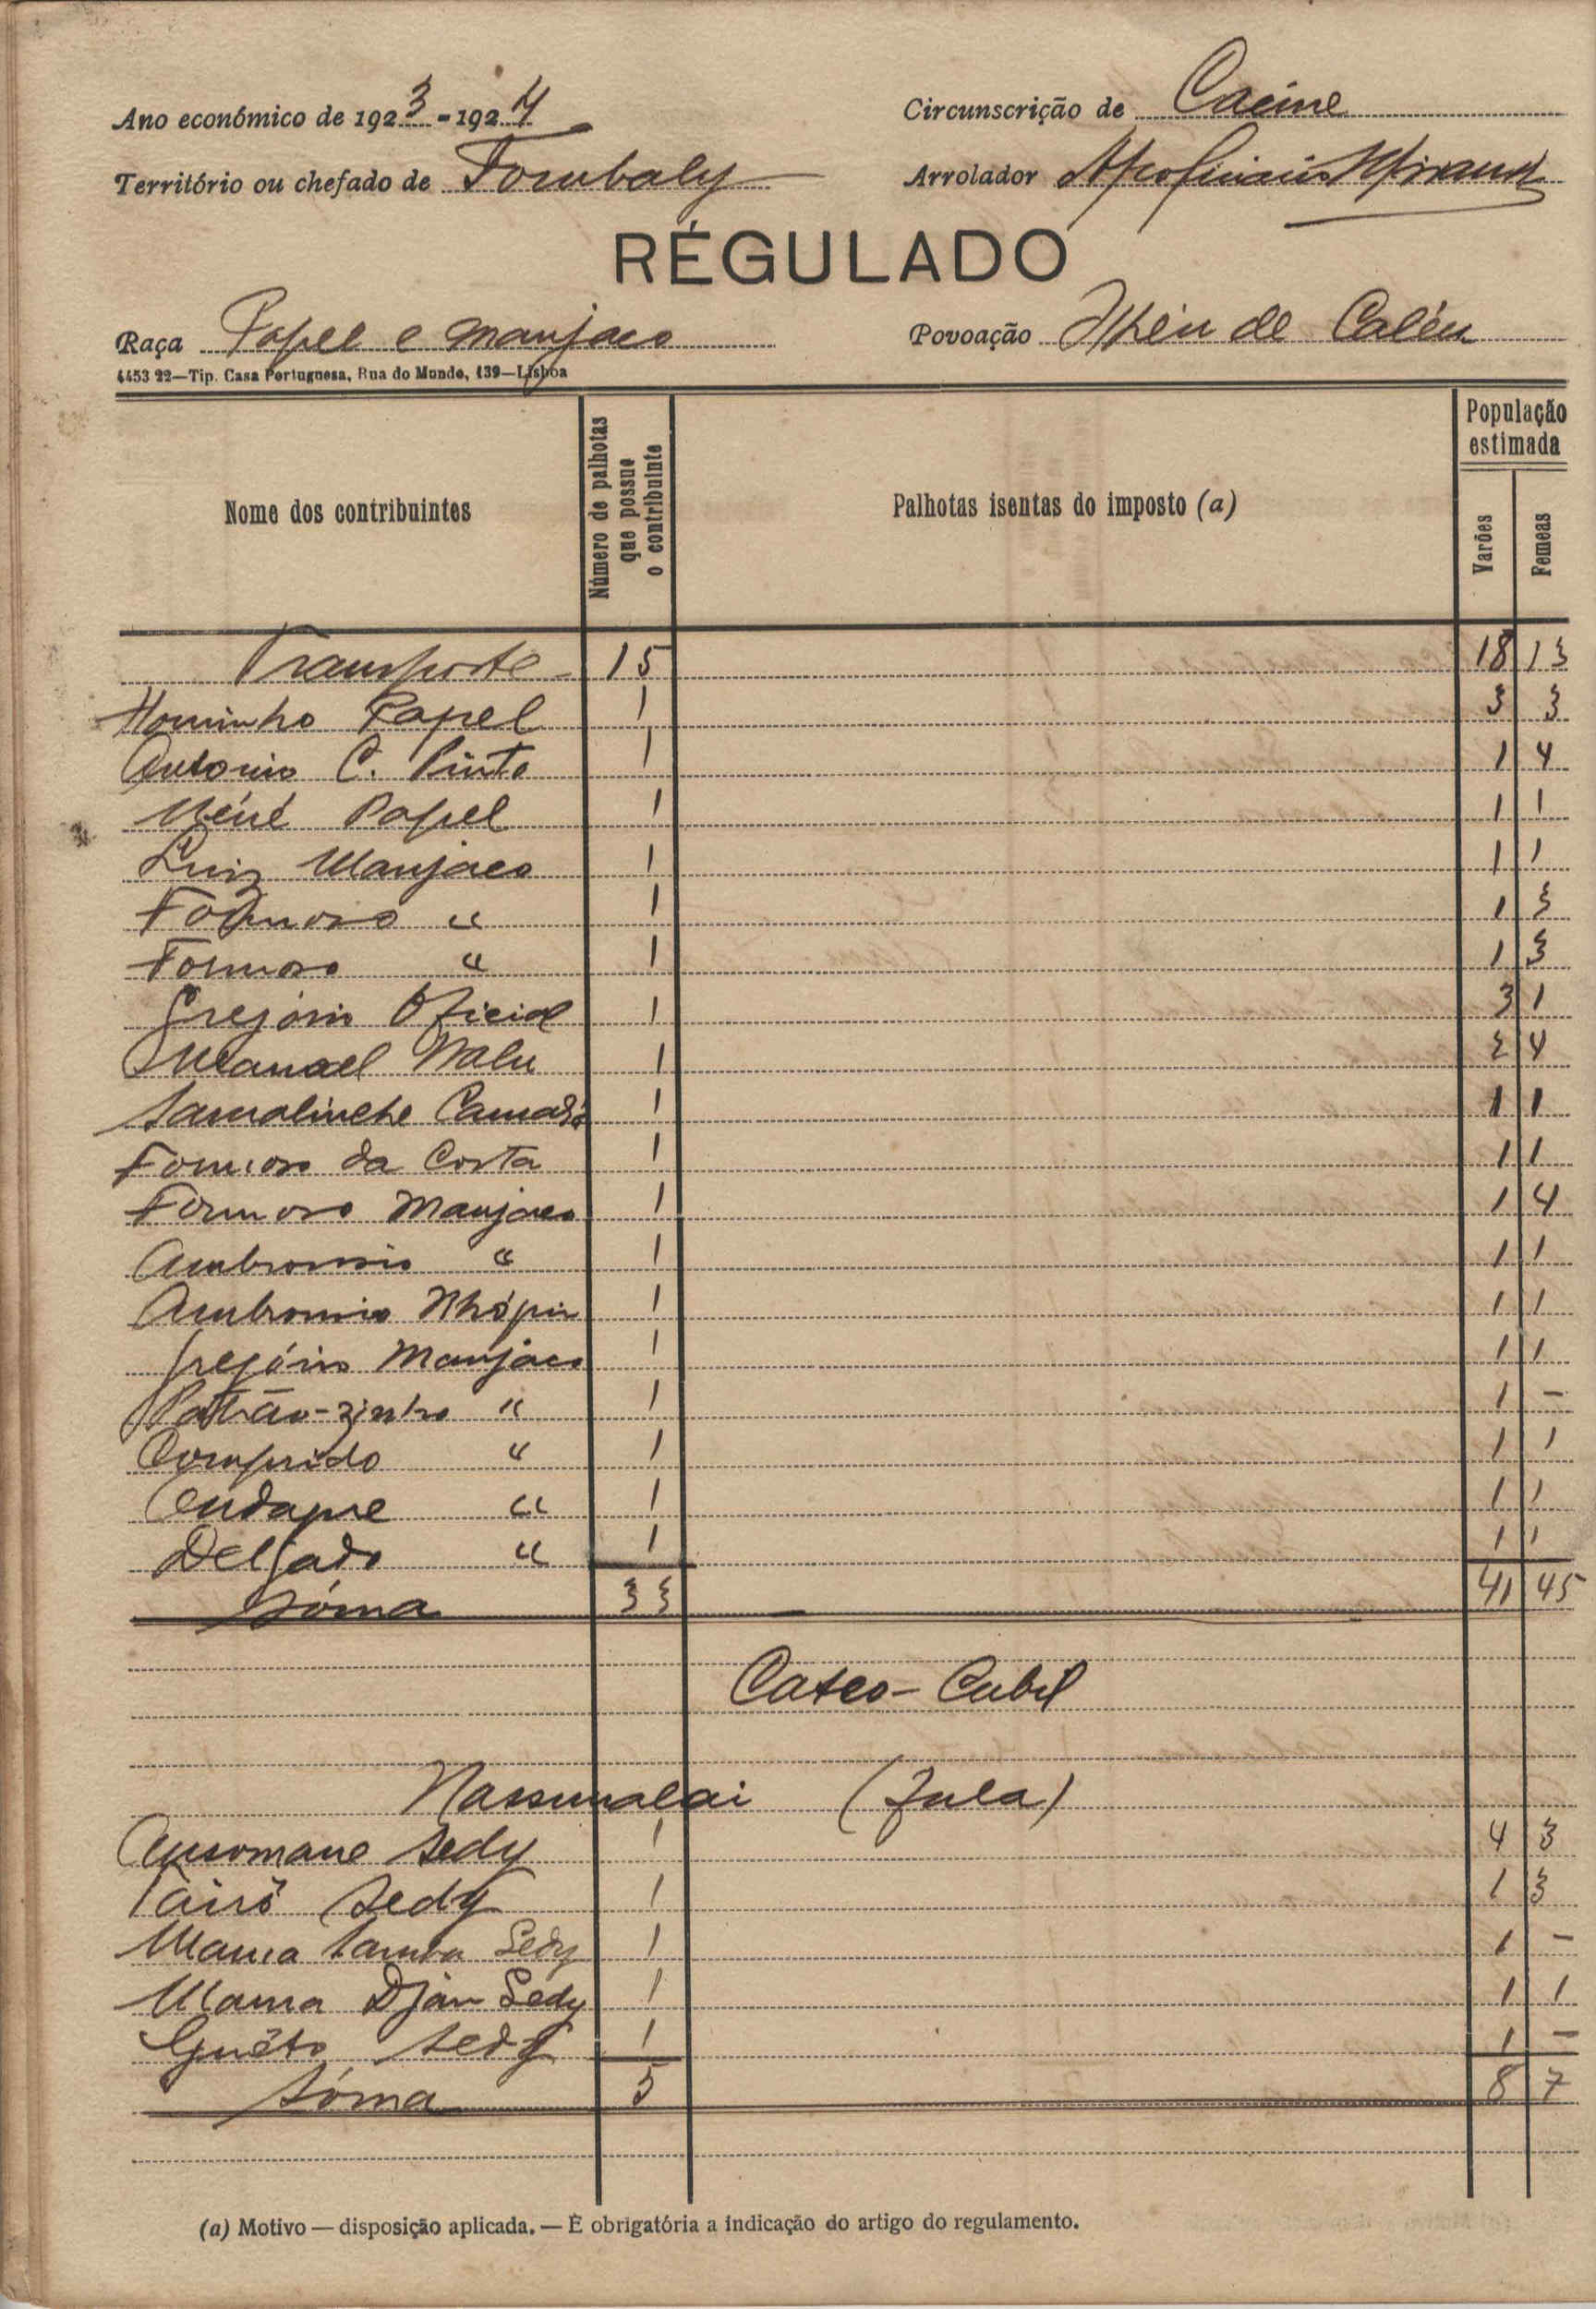 Ano económico de 1923-1924
Circunscrição de Cacine
Território ou chefado de Tombaly
Arrolador
RÉGULADO
Raça Papel e manjaco
Povoação de
4453 22—Tip. Casa Portuguesa, Rua do Mundo, 139—Lisboa
Nome dos contribuintes
Número de palhotas que possue o contribuinte
Palhotas isentas do imposto (a)
População estimada
Varões
Femeas
Transporte 15 18 13
Papel 1 3 3
Antonio C. Pinto 1 1 4
Papel 1 1 1
Luiz Manjaco 1 1 1
Formoso " 1 1 3
Formoso " 1 1 3
Gregório Oficial 1 3 1
Manoel Nalu 1 2 4
Camará 1 1 1
Formoso da Costa 1 1 1
Formoso Manjaco 1 1 4
Ambrosio " 1 1 1
Ambrosio 1 1 1
Gregório Manjaco 1 1 1
Patrão-zinho " 1 1 -
Comprido " 1 1 1
" 1 1 1
Delgado " 1 1 1
Sóma 33 41 45
Catco-Cubil
Nassumalai (Fula)
Ansomane Sedy 1 4 3
Tairô Sedy 1 1 3
Mama Samba Sedy 1 1 -
Mama Djan Sedy 1 1 1
Guêto Sedy 1 1 -
Sóma 5 8 7
(a) Motivo — disposição aplicada. — É obrigatória a indicação do artigo do regulamento.